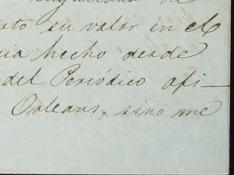 su valor en el
hecho desde
del Periódico ofi-
Orleans, sino me